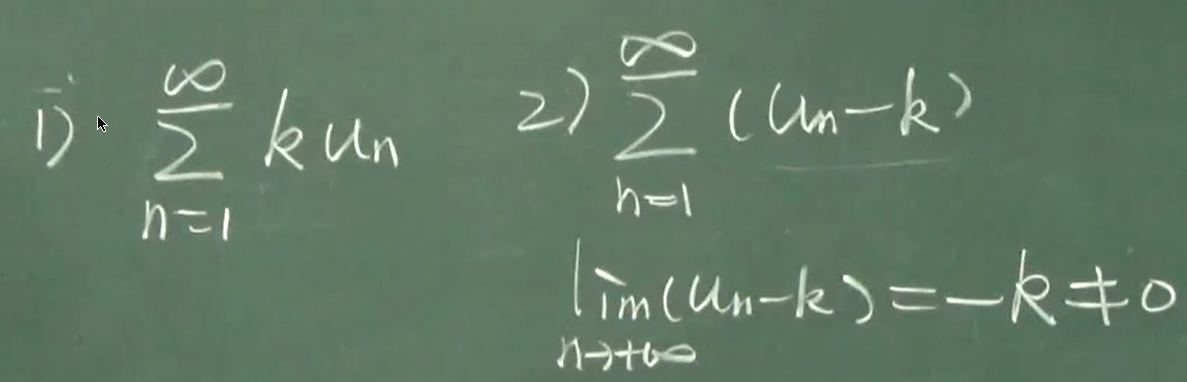 1) \sum_{n=1}^{\infty} k u_n
2) \sum_{n=1}^{\infty} (u_n - k)
\lim_{n \to +\infty} (u_n - k) = -k \neq 0